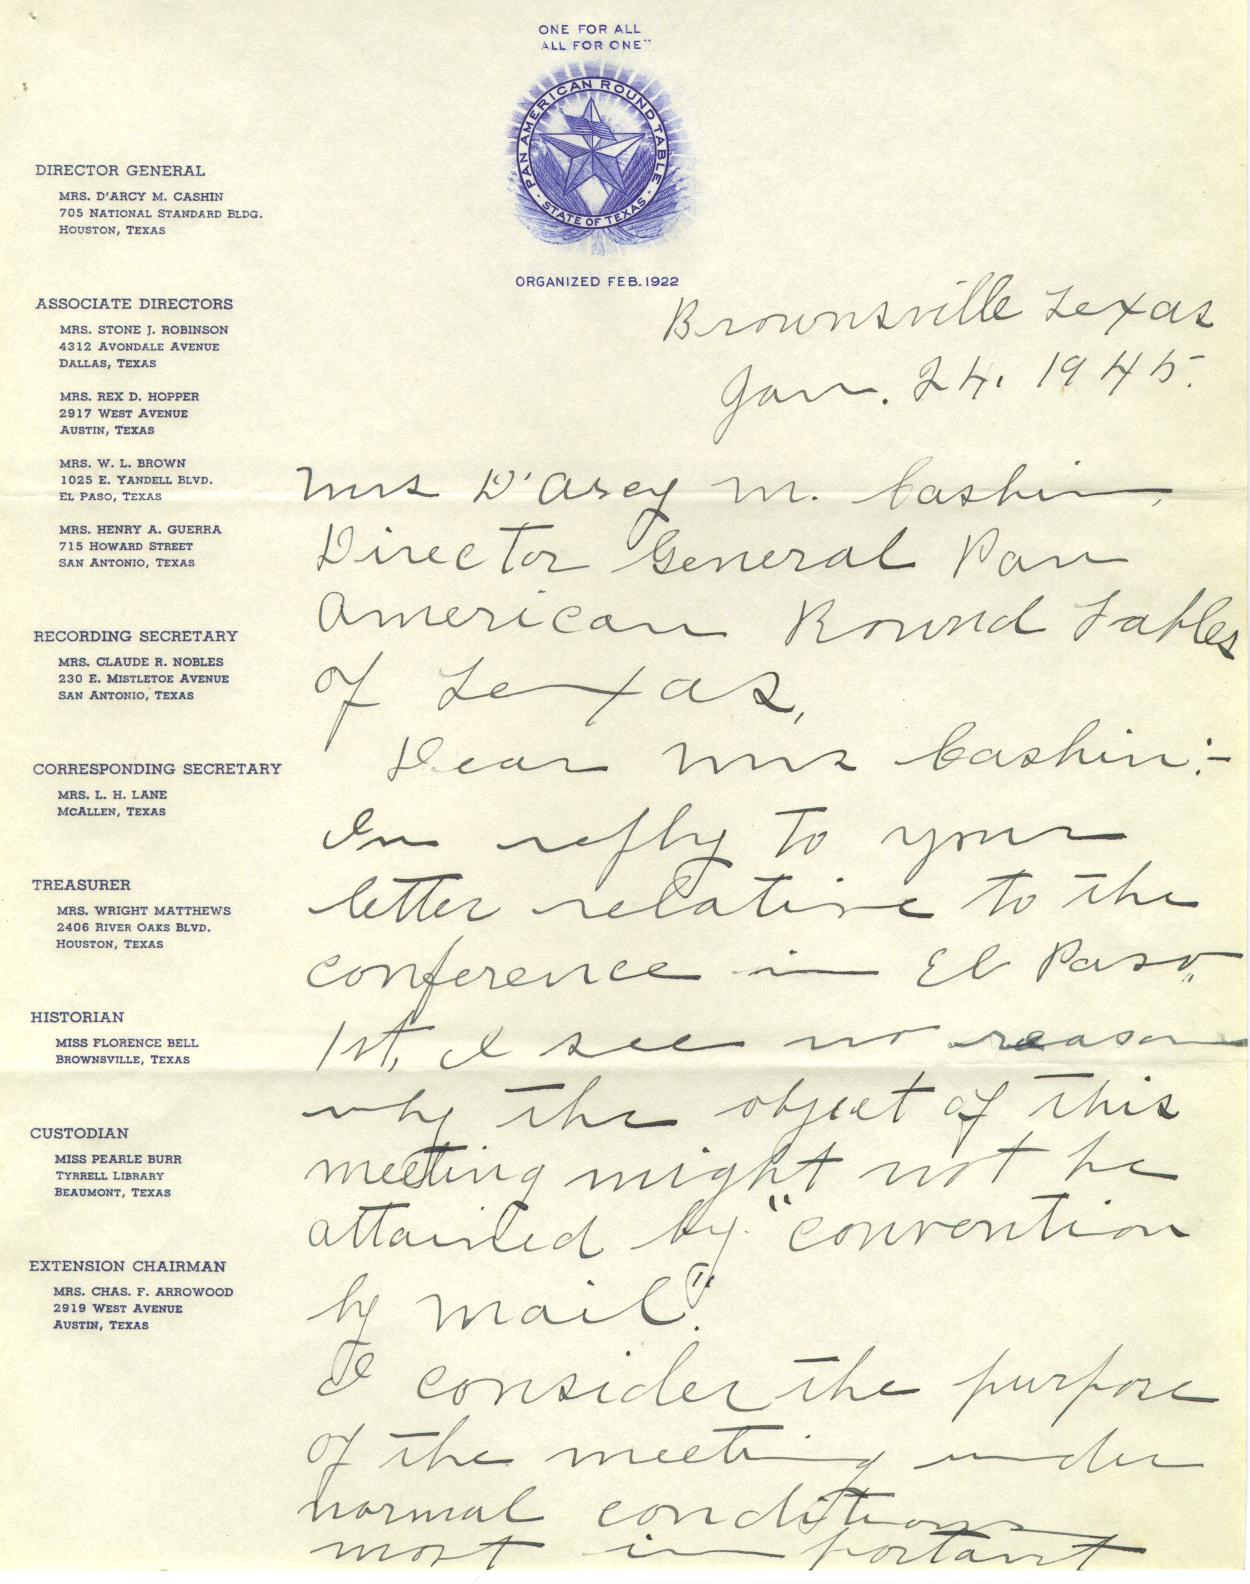 ONE FOR ALL
ALL FOR ONE"
PAN AMERICAN ROUND TABLE
· STATE OF TEXAS ·
ORGANIZED FEB. 1922
DIRECTOR GENERAL
MRS. D'ARCY M. CASHIN
705 NATIONAL STANDARD BLDG.
HOUSTON, TEXAS
ASSOCIATE DIRECTORS
MRS. STONE J. ROBINSON
4312 AVONDALE AVENUE
DALLAS, TEXAS
MRS. REX D. HOPPER
2917 WEST AVENUE
AUSTIN, TEXAS
MRS. W. L. BROWN
1025 E. YANDELL BLVD.
EL PASO, TEXAS
MRS. HENRY A. GUERRA
715 HOWARD STREET
SAN ANTONIO, TEXAS
RECORDING SECRETARY
MRS. CLAUDE R. NOBLES
230 E. MISTLETOE AVENUE
SAN ANTONIO, TEXAS
CORRESPONDING SECRETARY
MRS. L. H. LANE
MCALLEN, TEXAS
TREASURER
MRS. WRIGHT MATTHEWS
2406 RIVER OAKS BLVD.
HOUSTON, TEXAS
HISTORIAN
MISS FLORENCE BELL
BROWNSVILLE, TEXAS
CUSTODIAN
MISS PEARLE BURR
TYRRELL LIBRARY
BEAUMONT, TEXAS
EXTENSION CHAIRMAN
MRS. CHAS. F. ARROWOOD
2919 WEST AVENUE
AUSTIN, TEXAS
Brownsville Texas
Jan. 24. 1945.
Mrs D'Arcy M. Cashin,
Director General Pan
American Round Tables
of Texas,
Dear Mrs Cashin:-
In reply to your
letter relative to the
conference in El Paso,
1st, I see no reason
why the object of this
meeting might not be
attained by "convention
by mail".
I consider the purpose
of the meeting under
normal conditions
most important